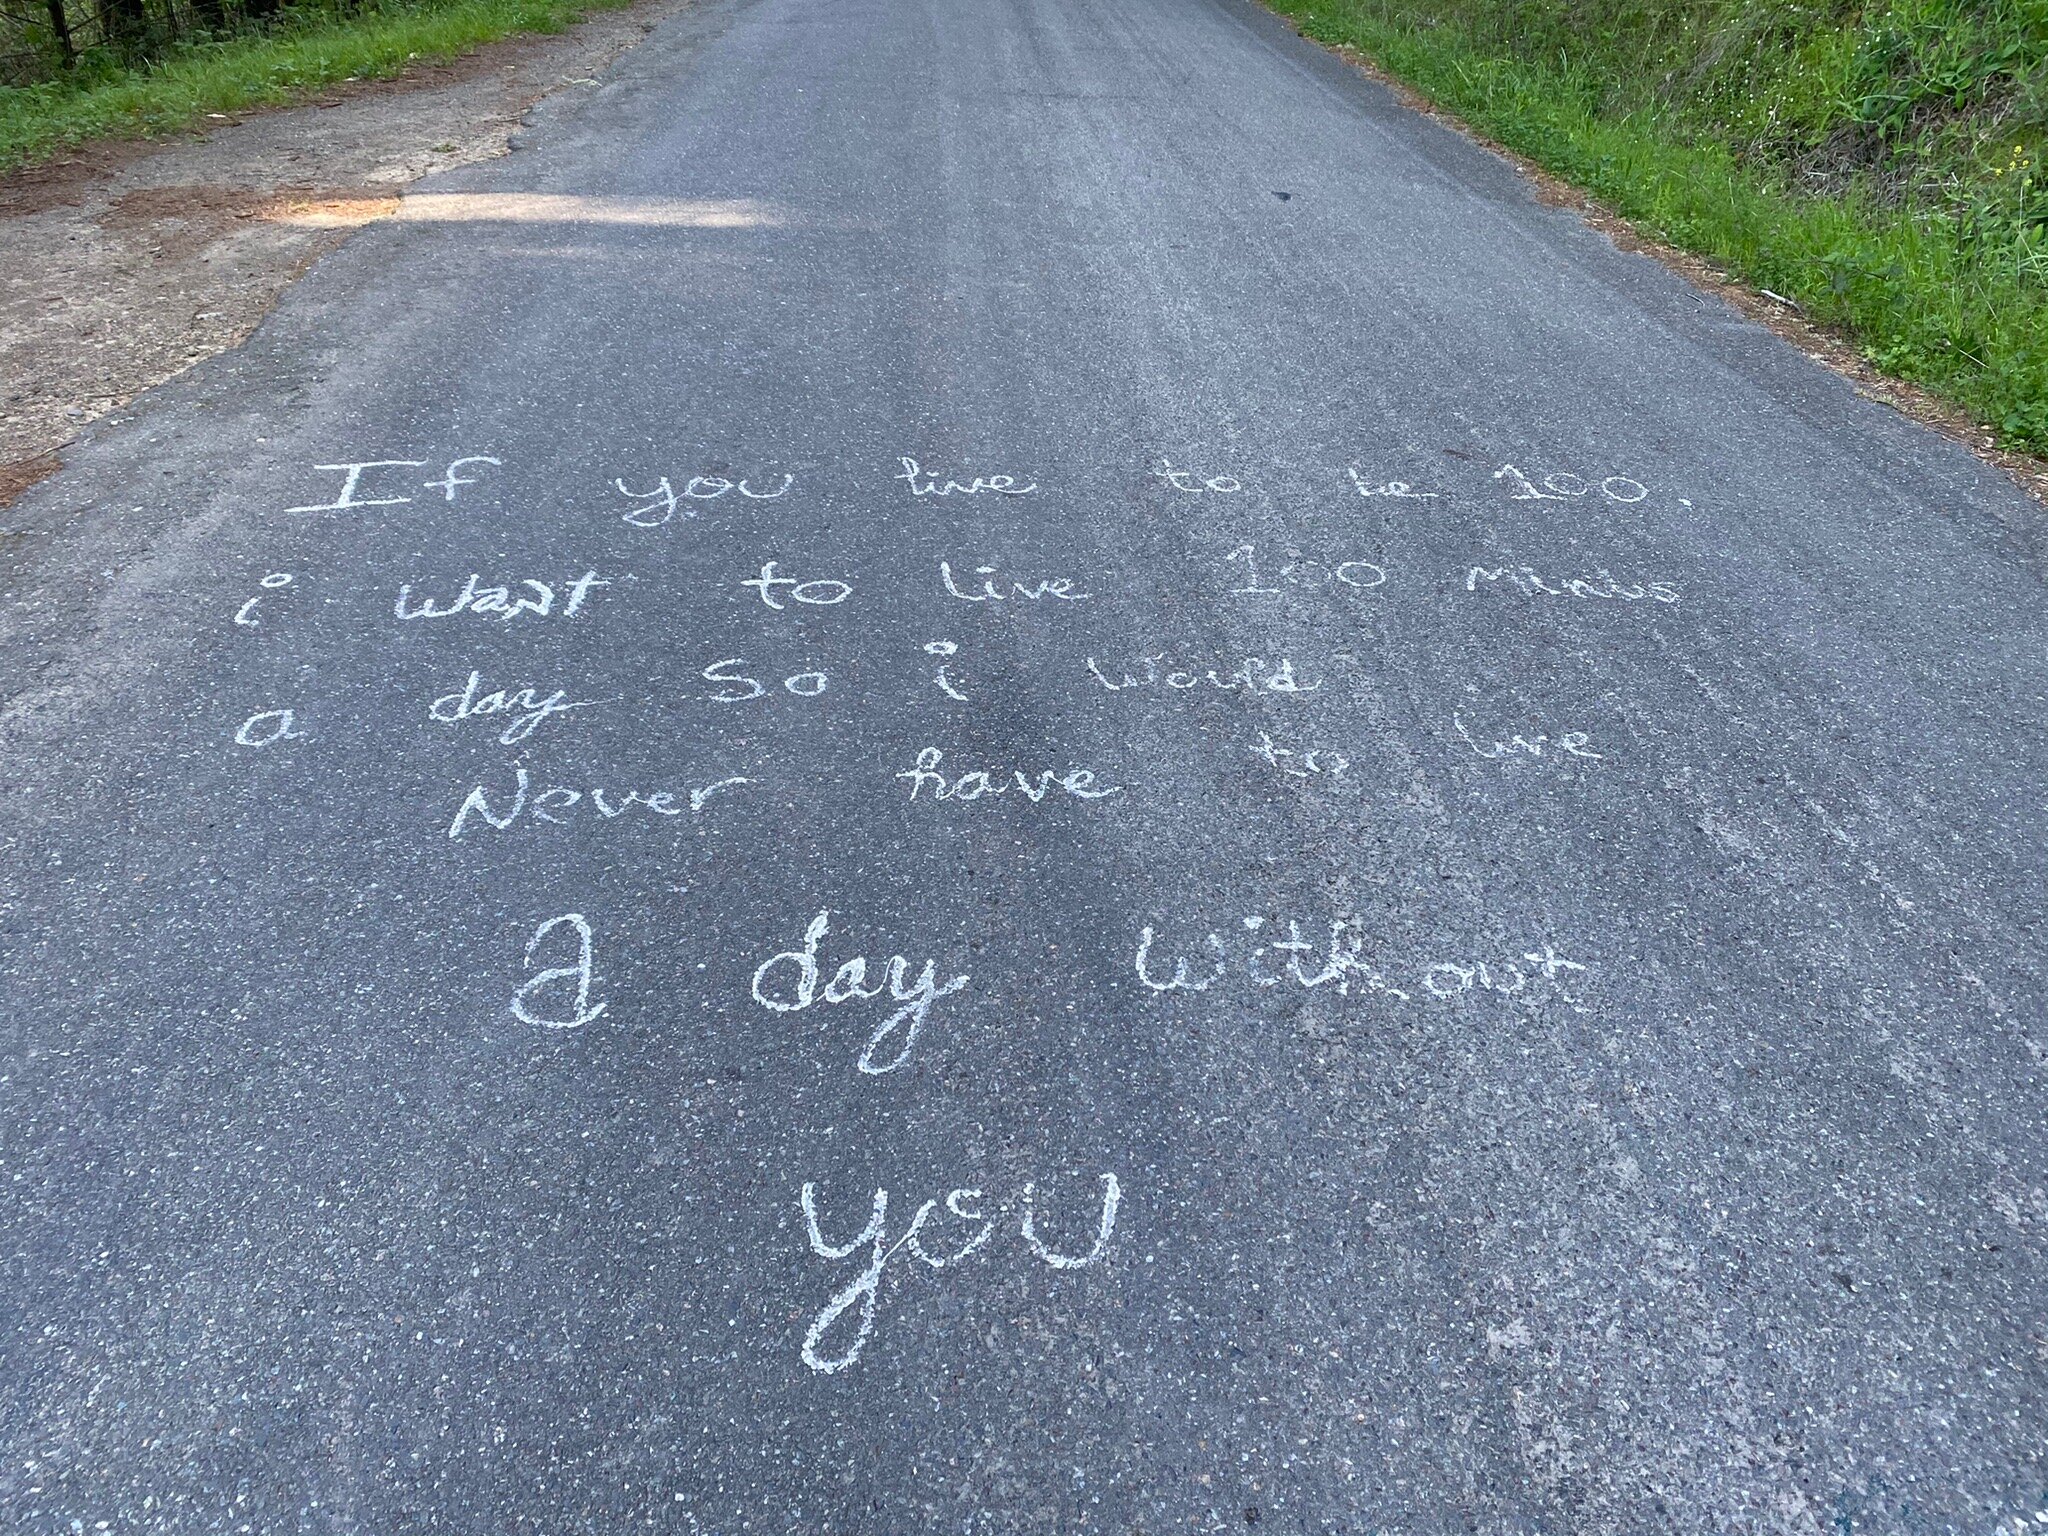 If you live to be 100.
i want to live 100 Minus
a day so i would
Never have to live
a day without
you